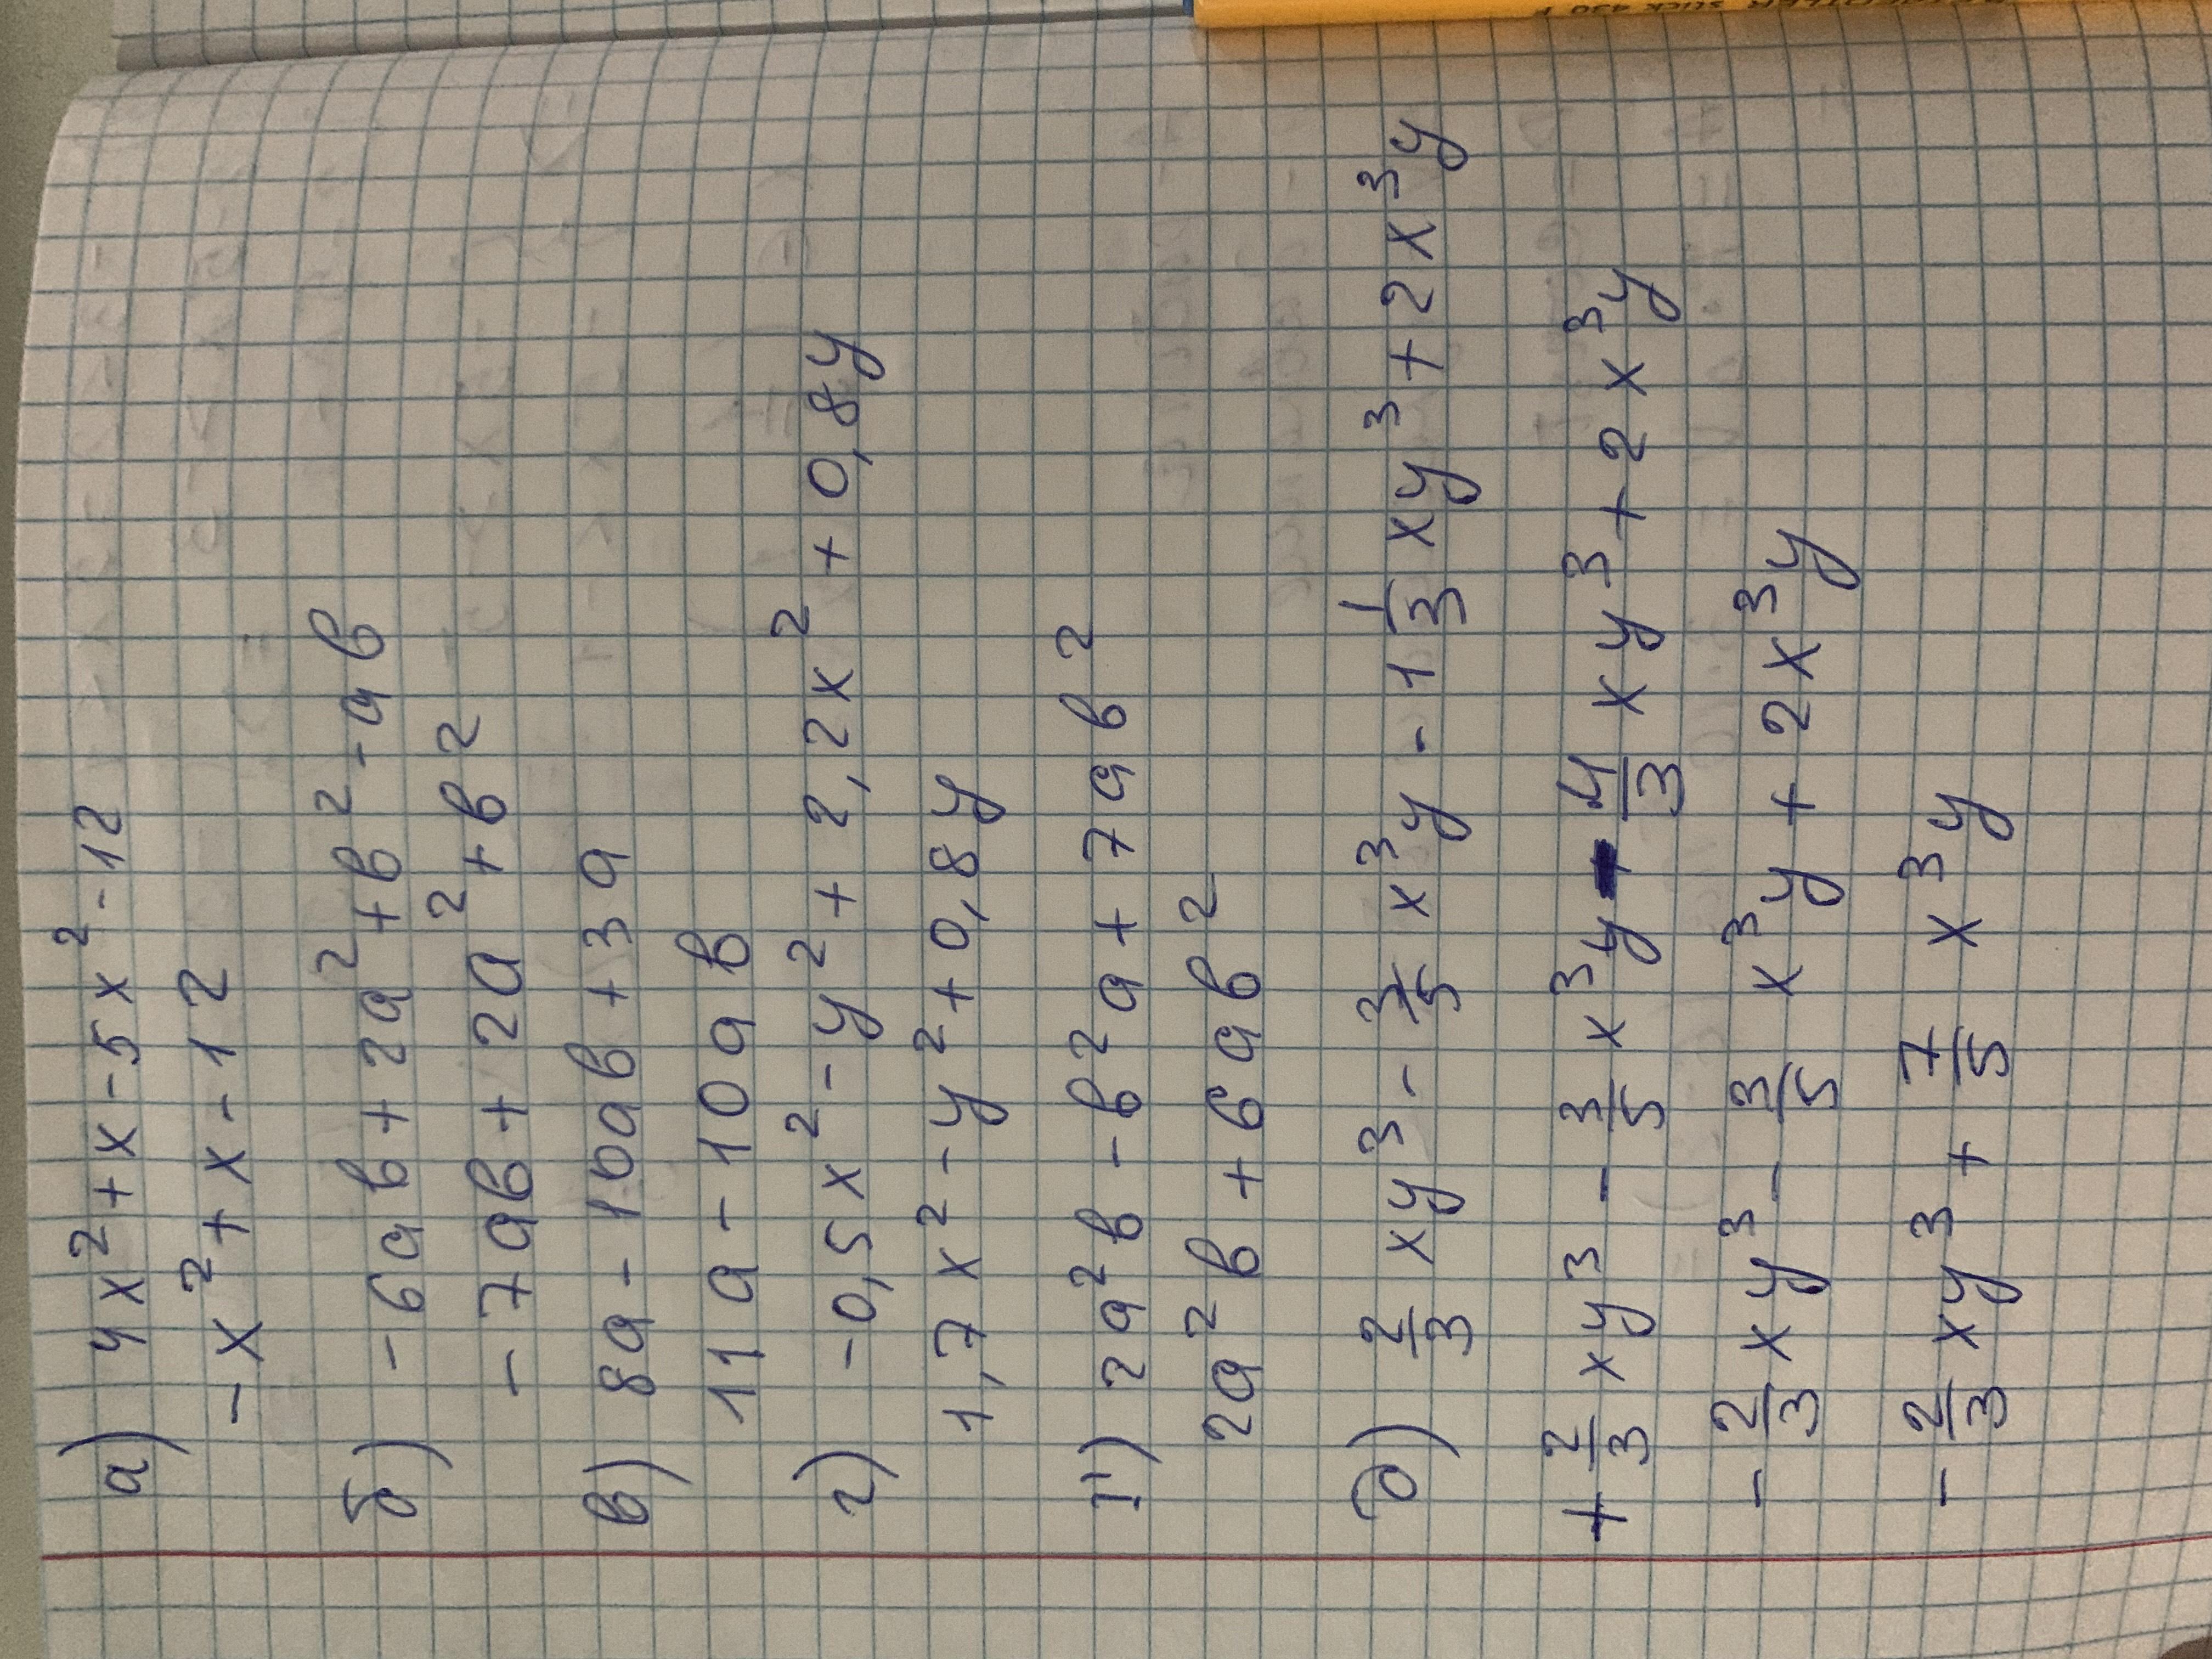 а) 4x²+x-5x²-12
-x²+x-12
б) -6ав+2а²+в²-ав
-7ав+2а²+в²
в) 8а-10ав+3а
11а-10ав
г) -0,5x²-y²+2,2x²+0,8y
1,7x²-y²+0,8y
ґ) 2а²в-в²а+7ав²
2а²в+6ав²
д) 2/3 xy³ - 3/5 x³y - 1 1/3 xy³ + 2x³y
+ 2/3 xy³ - 3/5 x³y - 4/3 xy³ + 2x³y
- 2/3 xy³ - 3/5 x³y + 2x³y
- 2/3 xy³ + 7/5 x³y